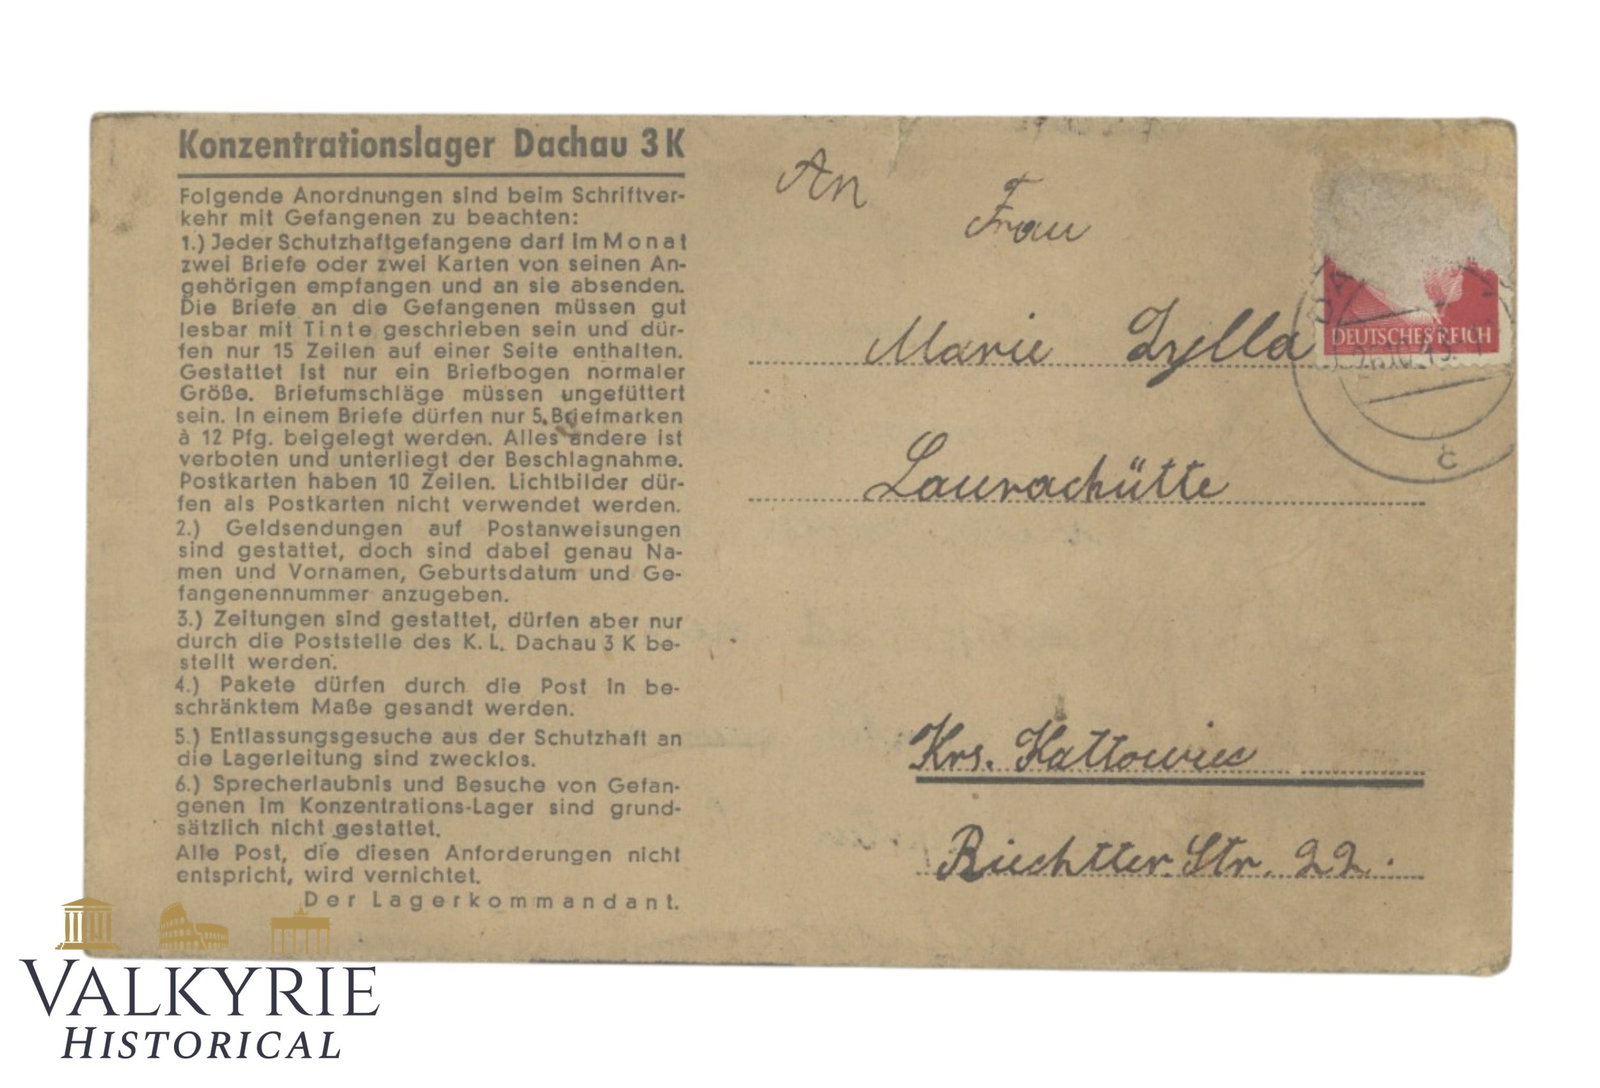 Konzentrationslager Dachau 3 K
Folgende Anordnungen sind beim Schriftver-
kehr mit Gefangenen zu beachten:
1.) Jeder Schutzhaftgefangene darf im Monat
zwei Briefe oder zwei Karten von seinen An-
gehörigen empfangen und an sie absenden.
Die Briefe an die Gefangenen müssen gut
lesbar mit Tinte geschrieben sein und dür-
fen nur 15 Zeilen auf einer Seite enthalten.
Gestattet ist nur ein Briefbogen normaler
Größe. Briefumschläge müssen ungefüttert
sein. In einem Briefe dürfen nur 5 Briefmarken
à 12 Pfg. beigelegt werden. Alles andere ist
verboten und unterliegt der Beschlagnahme.
Postkarten haben 10 Zeilen. Lichtbilder dür-
fen als Postkarten nicht verwendet werden.
2.) Geldsendungen auf Postanweisungen
sind gestattet, doch sind dabei genau Na-
men und Vornamen, Geburtsdatum und Ge-
fangenennummer anzugeben.
3.) Zeitungen sind gestattet, dürfen aber nur
durch die Poststelle des K. L. Dachau 3 K be-
stellt werden.
4.) Pakete dürfen durch die Post in be-
schränktem Maße gesandt werden.
5.) Entlassungsgesuche aus der Schutzhaft an
die Lagerleitung sind zwecklos.
6.) Sprecherlaubnis und Besuche von Gefan-
genen im Konzentrations-Lager sind grund-
sätzlich nicht gestattet.
Alle Post, die diesen Anforderungen nicht
entspricht, wird vernichtet.
Der Lagerkommandant.
An
Frau
Marie Zylla
Laurachütte
Krs. Kattowiec
Riechtter Str. 22.
DEUTSCHES REICH
c
VALKYRIE
HISTORICAL